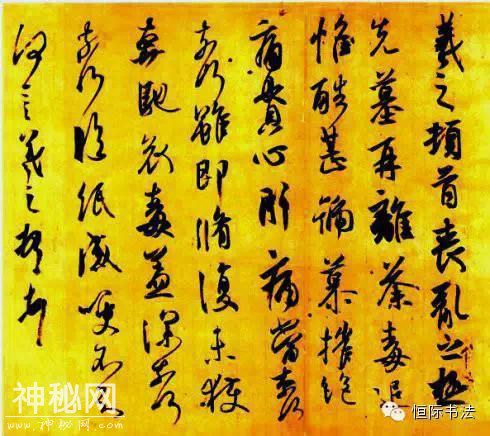 羲之頓首喪亂之極
先墓再離荼毒追
惟酷甚號慕摧絕
痛貫心肝痛當奈何
奈何雖即脩復未獲
奔馳哀毒益深奈何
奈何臨紙感哽不知
何言羲之頓首頓首
神秘网
www.zei8.com
恒际书法